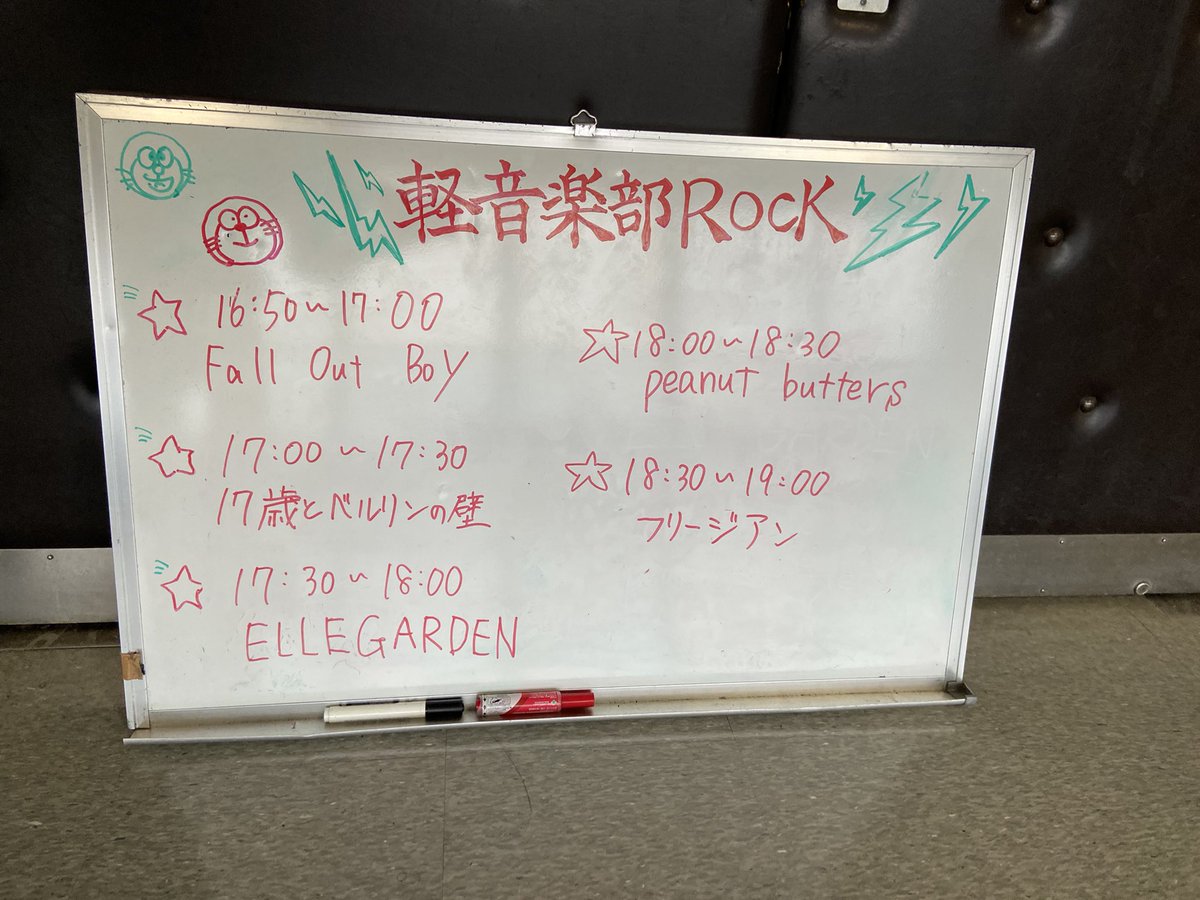 軽音楽部ROCK
16:50～17:00
Fall Out Boy
17:00～17:30
17歳とベルリンの壁
17:30～18:00
ELLEGARDEN
18:00～18:30
peanut butters
18:30～19:00
フリージアン